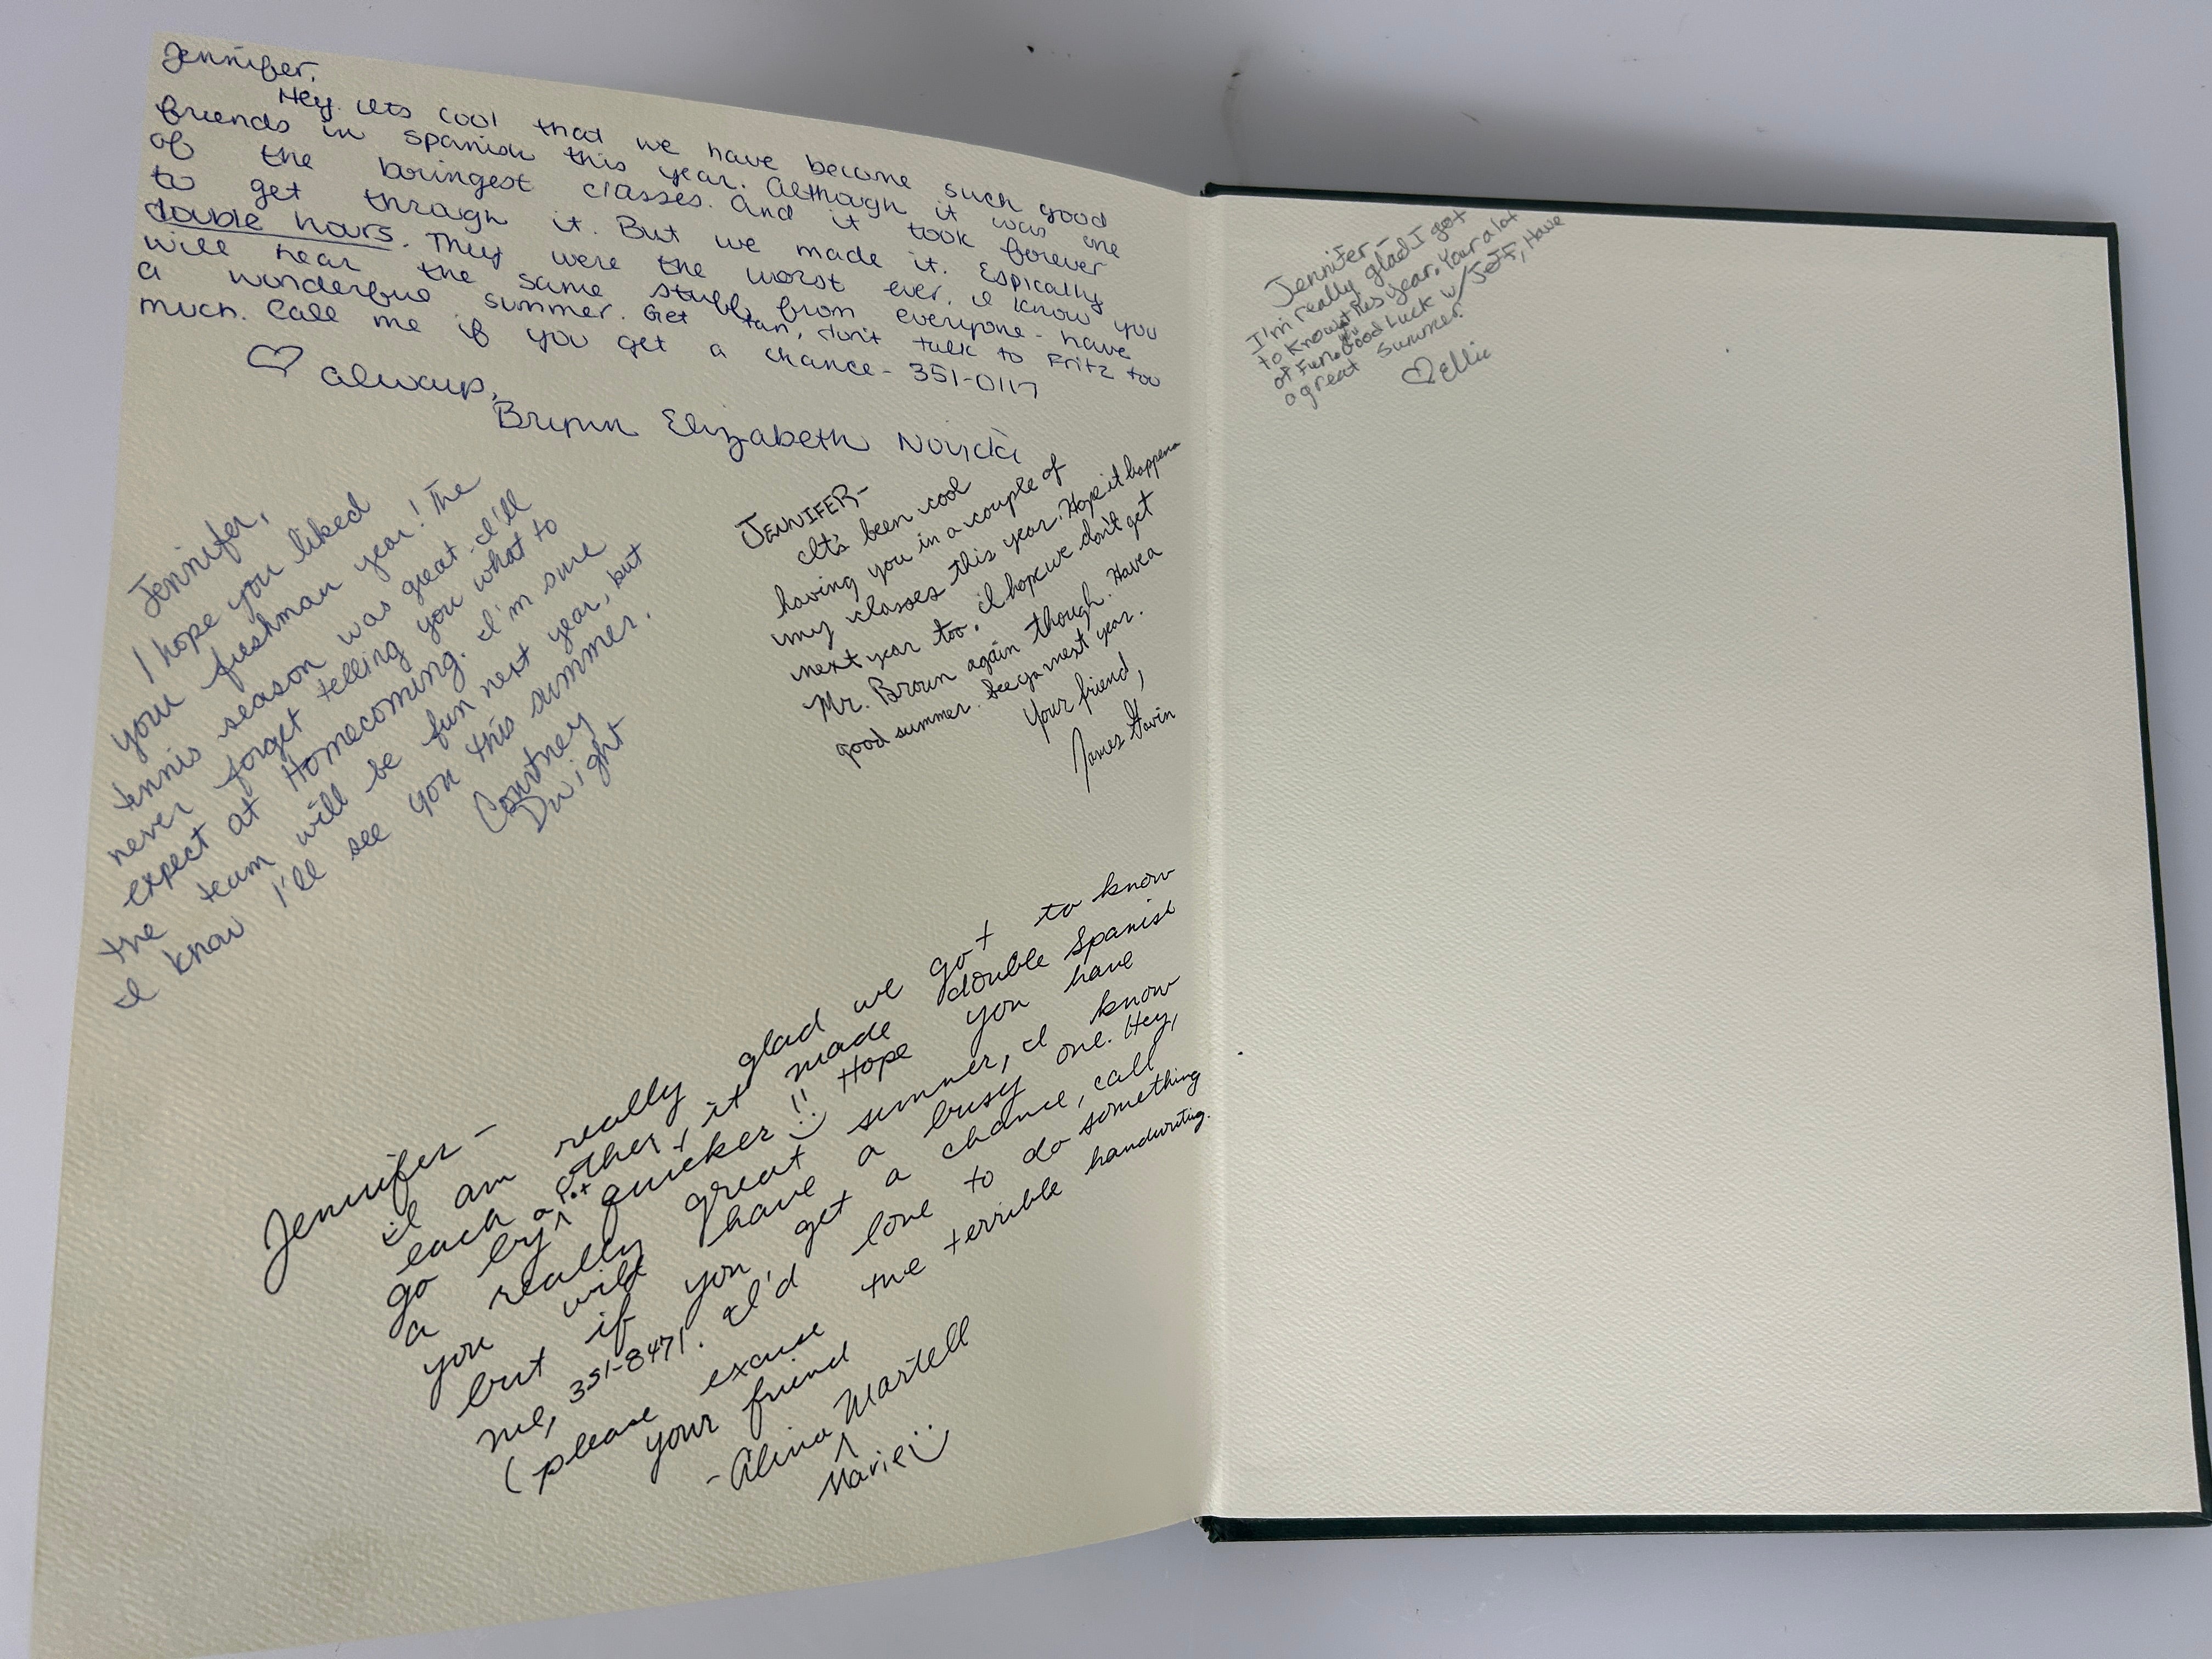 Jennifer,
Hey. Its cool that we have become such good
friends in spanish this year. Although it was one
of the boringest classes. And it took forever
to get through it. But we made it. Espically
double hours. They were the worst ever. I know you
will hear the same stuff from everyone - have
a wonderful summer. Get tan, don't talk to Fritz too
much. Call me if you get a chance - 351-0117
♡ always,
Brynn Elizabeth
Jennifer,
I hope you liked
your freshman year! The
tennis season was great - I'll
never forget telling you what to
expect at Homecoming. I'm sure
the team will be fun next year, but
I know I'll see you this summer.
Courtney
Dwight
JENNIFER-
It's been cool
having you in a couple of
my classes this year. Hope it happens
next year too. I hope we don't get
Mr. Brown again though. Have a
good summer. See ya next year.
Your friend,
James
Jennifer -
I am really glad we got to know
each other, it made double Spanish
go by a lot quicker!! Hope you have
a really great summer, I know
you will have a busy one. Hey,
but if you get a chance, call
me, 351-8471. I'd love to do something
(please excuse the terrible handwriting.
your friend
- Alina Marie Martell
Jennifer -
I'm really glad I got
to know you this year. Your a lot
of fun. Good Luck w/ Jeff, Have
a great summer.
♡ Ellie